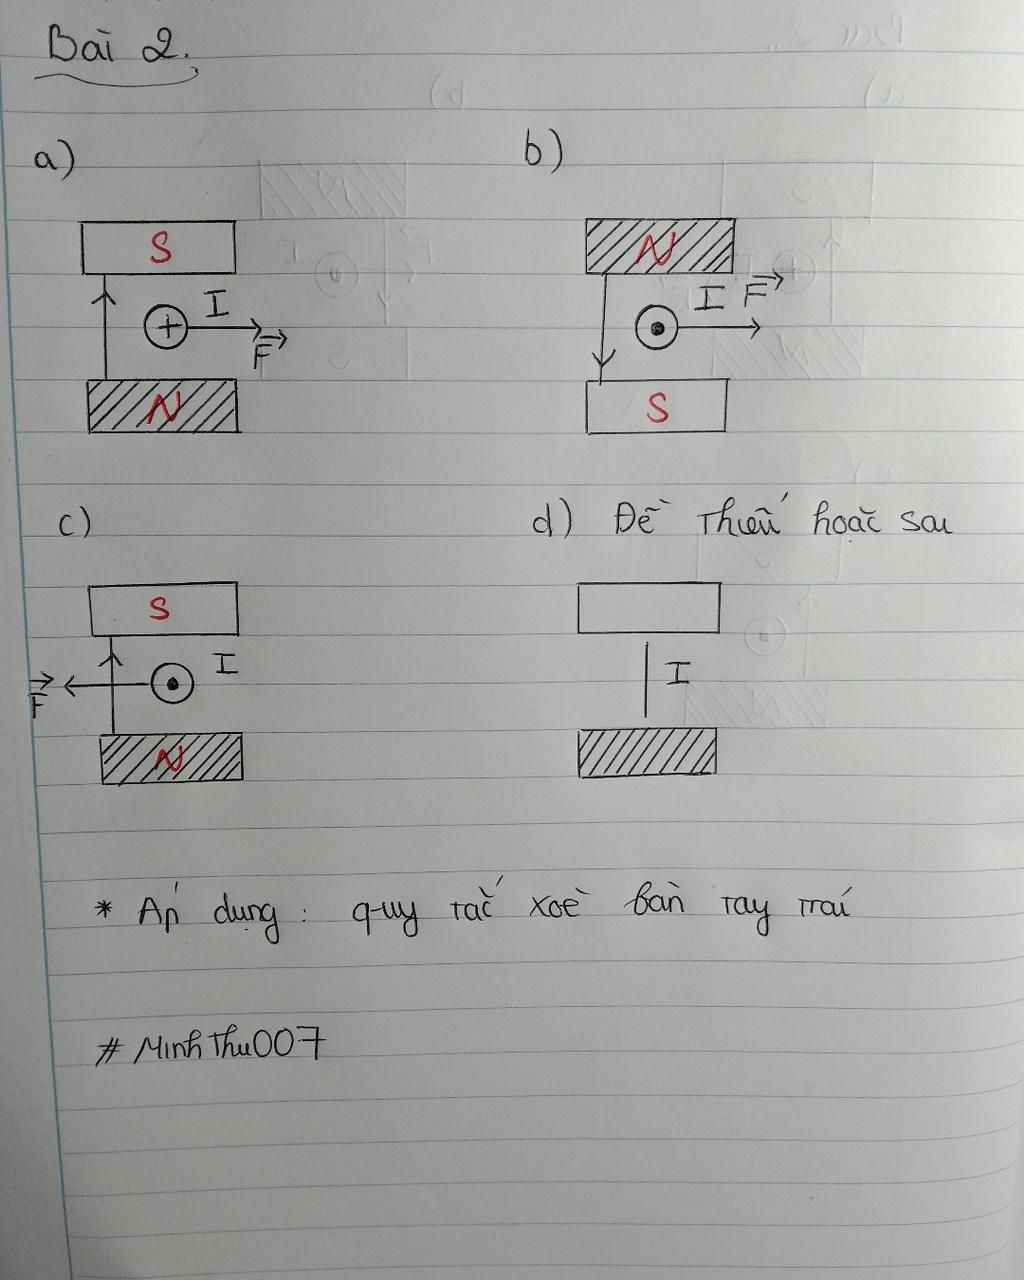 Bài 2.
a)
b)
S
I
F
N
N
I F
S
c)
d) Đề thiếu hoặc sai
S
I
F
N
I
* Áp dụng : quy tắc xoè bàn tay trái
# MinhThu007